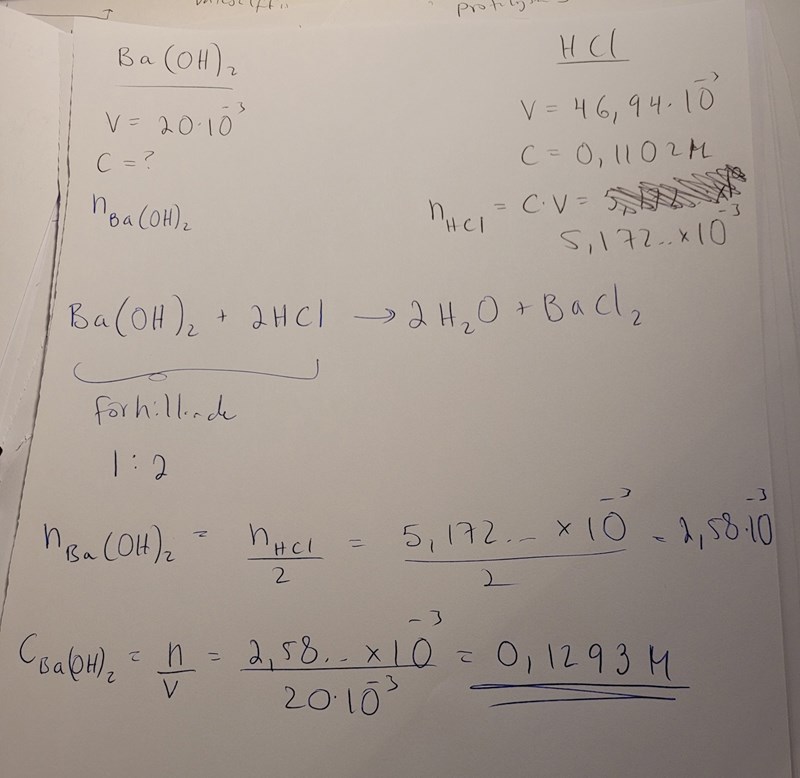 Ba(OH)₂
V = 20·10⁻³
C = ?
n Ba(OH)₂
HCl
V = 46,94·10⁻³
C = 0,1102 M
n HCl = C·V =
5,172..×10⁻³
Ba(OH)₂ + 2HCl → 2H₂O + BaCl₂
1 : 2
n Ba(OH)₂ = n HCl / 2 = 5,172..×10⁻³ / 2 = 2,58·10⁻³
C Ba(OH)₂ = n / V = 2,58..×10⁻³ / 20·10⁻³ = 0,1293 M